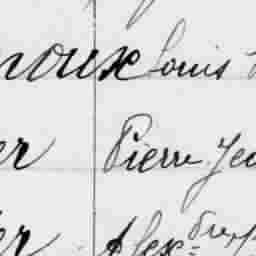 noux Louis
er Pierre Je
er Alex=dre